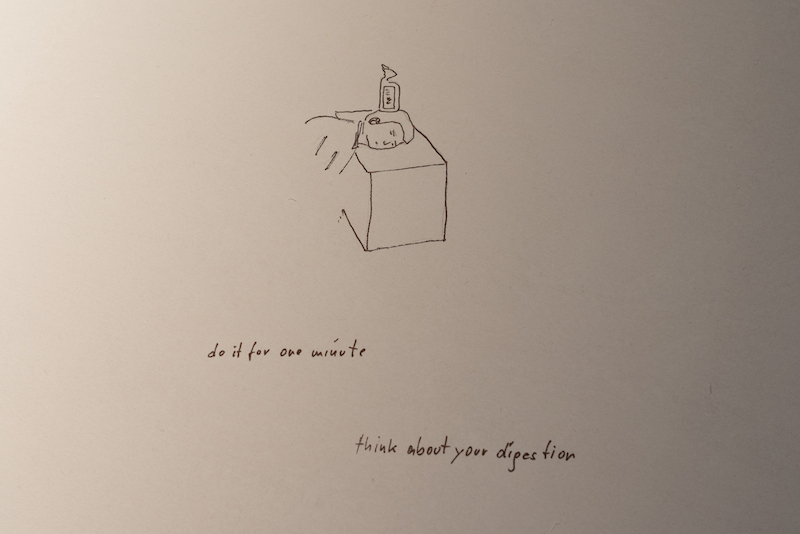 do it for one minute
think about your digestion